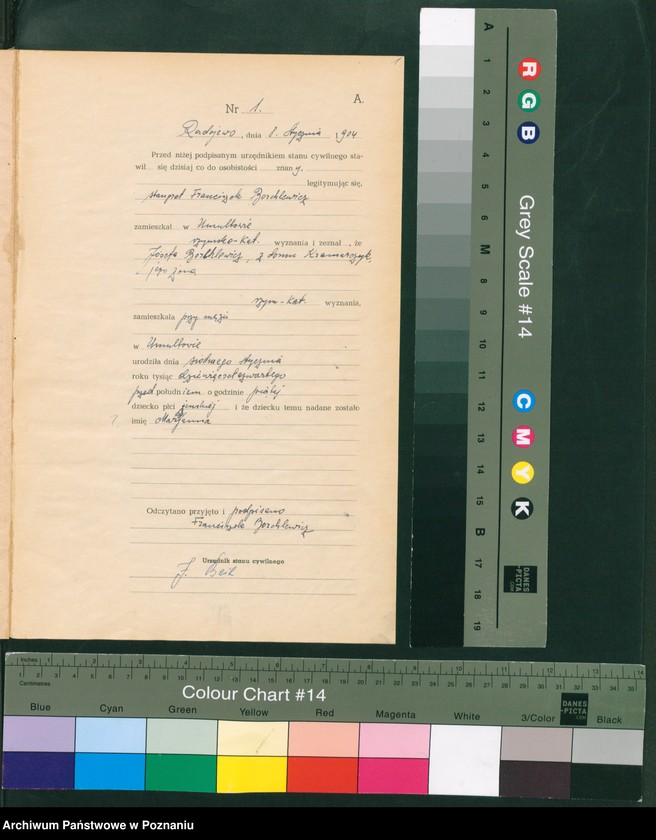 A.
Nr 1.
Radojewo, dnia 8. stycznia 1904
Przed niżej podpisanym urzędnikiem stanu cywilnego sta-
wił się dzisiaj co do osobistości znany,
legitymując się,
Franciszek Borchlewicz
zamieszkał w Umultowie
rzymsko-kat. wyznania i zeznał, że
Józefa Borchlewicz, z domu Kramarczyk,
jego żona
rzym-kat. wyznania,
zamieszkała przy mężu
w Umultowie
urodziła dnia stycznia
roku tysiąc dziewięćset czwartego
przed południem o godzinie piątej
dziecko płci żeńskiej i że dziecku temu nadane zostało
imię Marjanna
Odczytano przyjęto i podpisano
Franciszek Borchlewicz
Urzędnik stanu cywilnego
J. Beik
A 1 2 3 4 5 6 M 8 9 10 11 12 13 14 15 B 17 18 19
R G B
Grey Scale #14
C M Y K
DANES
-PICTA
.COM
Inches 1 2 3 4 5 6 7 8 9 10 11 12 13 14
Centimetres
Colour Chart #14
DANES
-PICTA
.COM
Blue Cyan Green Yellow Red Magenta White 3/Color Black
Archiwum Państwowe w Poznaniu